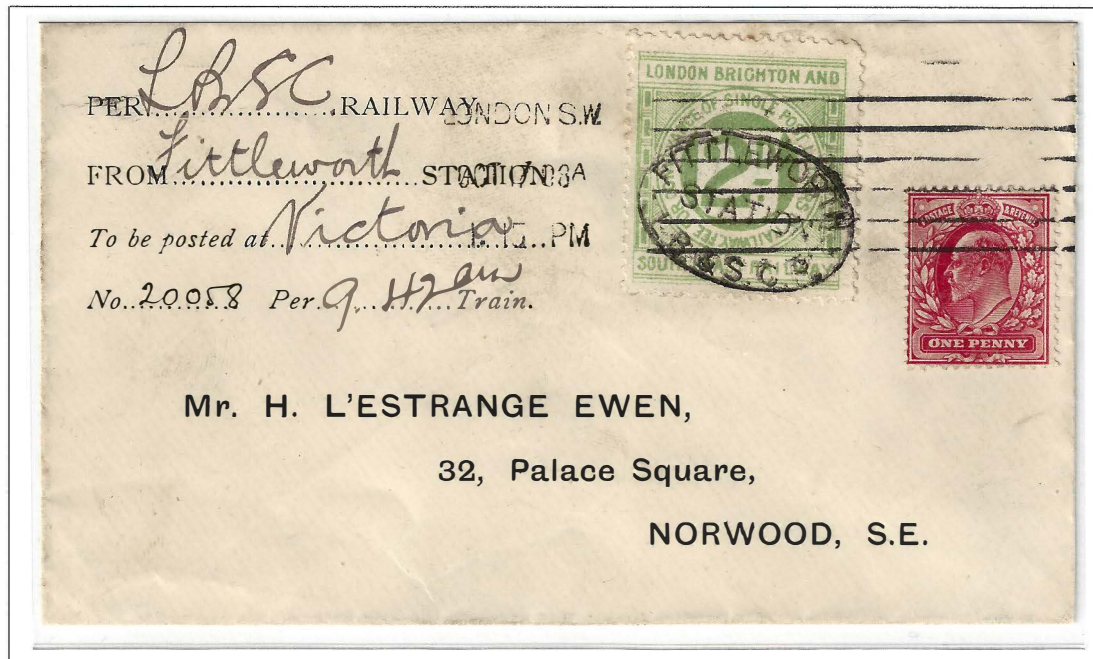 PER L B S C RAILWAY
LONDON S.W.
FROM Fittleworth STATION
OCT 17 03A
To be posted at Victoria
1.15 PM
No. 20058 Per 9.42 am Train.
LONDON BRIGHTON AND
OF SINGLE POST
2D
RAILWAY
SOUTH
FITTLEWORTH
STATION
L.B.&S.C.Ry
POSTAGE & REVENUE
ONE PENNY
Mr. H. L'ESTRANGE EWEN,
32, Palace Square,
NORWOOD, S.E.